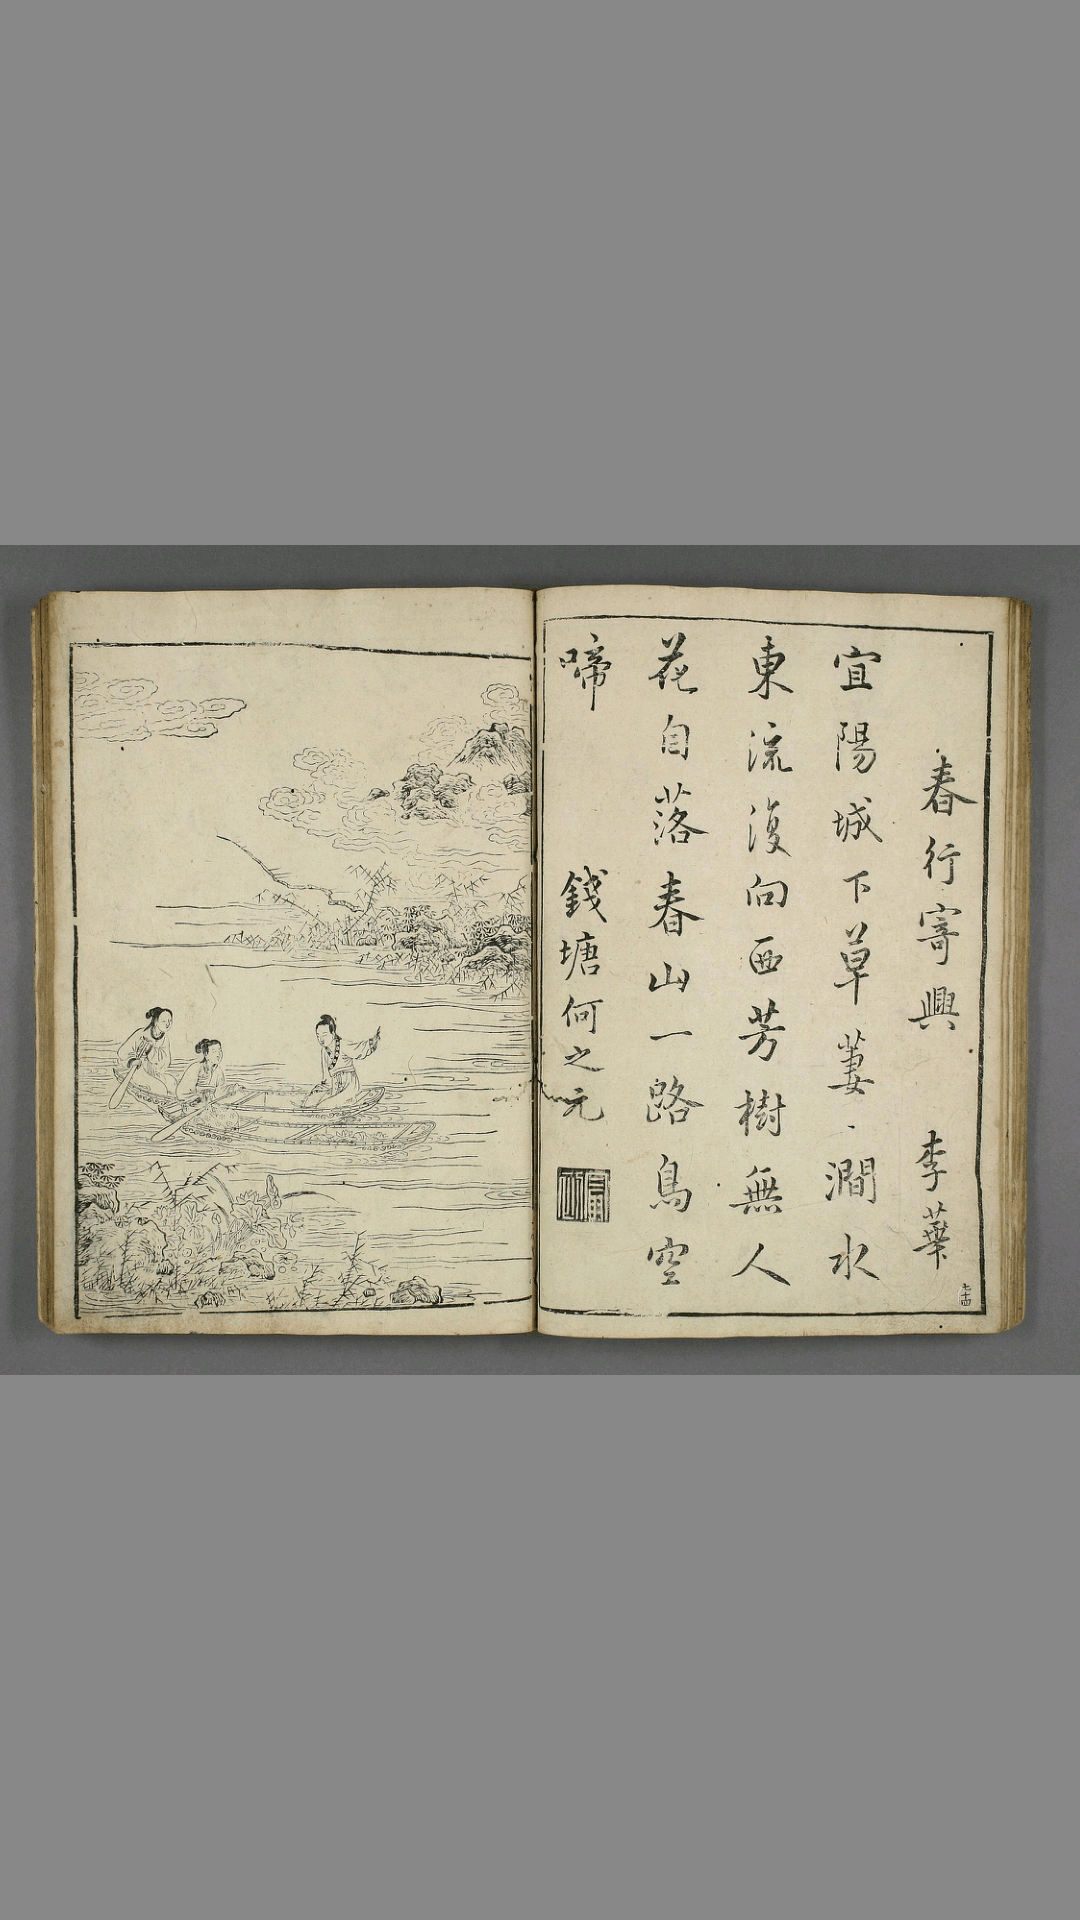 春行寄興 李華
宜陽城下草萋〻澗水
東流復向西芳樹無人
花自落春山一路鳥空
啼
錢塘何之元
七十四